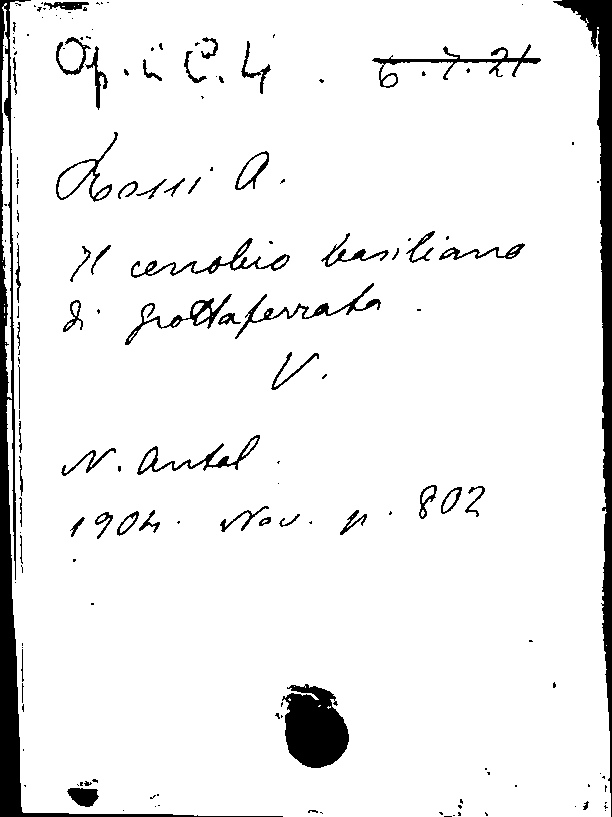 Op. ii C. 4. 6.7.21
Rossi A.
Il cenobio basiliano
di Grottaferrata.
V.
N. Antol.
1904. Nov. p. 802